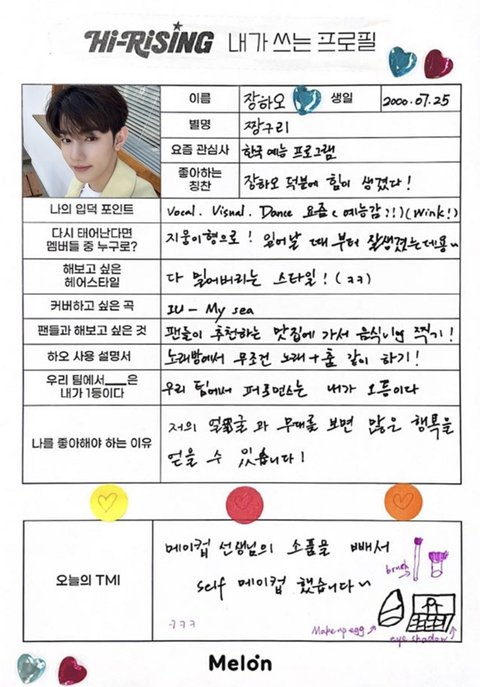 Hi-RiSiNG 내가 쓰는 프로필
이름 장하오 생일 2000.07.25
별명 짱구리
요즘 관심사 한국 예능 프로그램
좋아하는
칭찬 장하오 덕분에 힘이 생겼다!
나의 입덕 포인트 Vocal. Visual. Dance 요즘(예능감?!)(Wink!)
다시 태어난다면
멤버들 중 누구로? 지웅이형으로! 일어날 때부터 잘생겼는데용~
해보고 싶은
헤어스타일 다 밀어버리는 스타일!(ㅋㅋ)
커버하고 싶은 곡 IU - My sea
팬들과 해보고 싶은 것 팬들이 추천하는 맛집에 가서 음식 찍기!
하오 사용 설명서 노래방에서 무조건 노래+춤 같이 하기!
우리 팀에서___은
내가 1등이다 우리 팀에서 퍼포먼스는 내가 오등이다
나를 좋아해야 하는 이유 저의 얼굴과 무대를 보면 많은 행복을
얻을 수 있습니다!
오늘의 TMI 메이컵 선생님의 소품을 빼서
self 메이컵 했습니다~
ㅋㅋㅋ
brush
Makeup egg
eye shadow
Melon